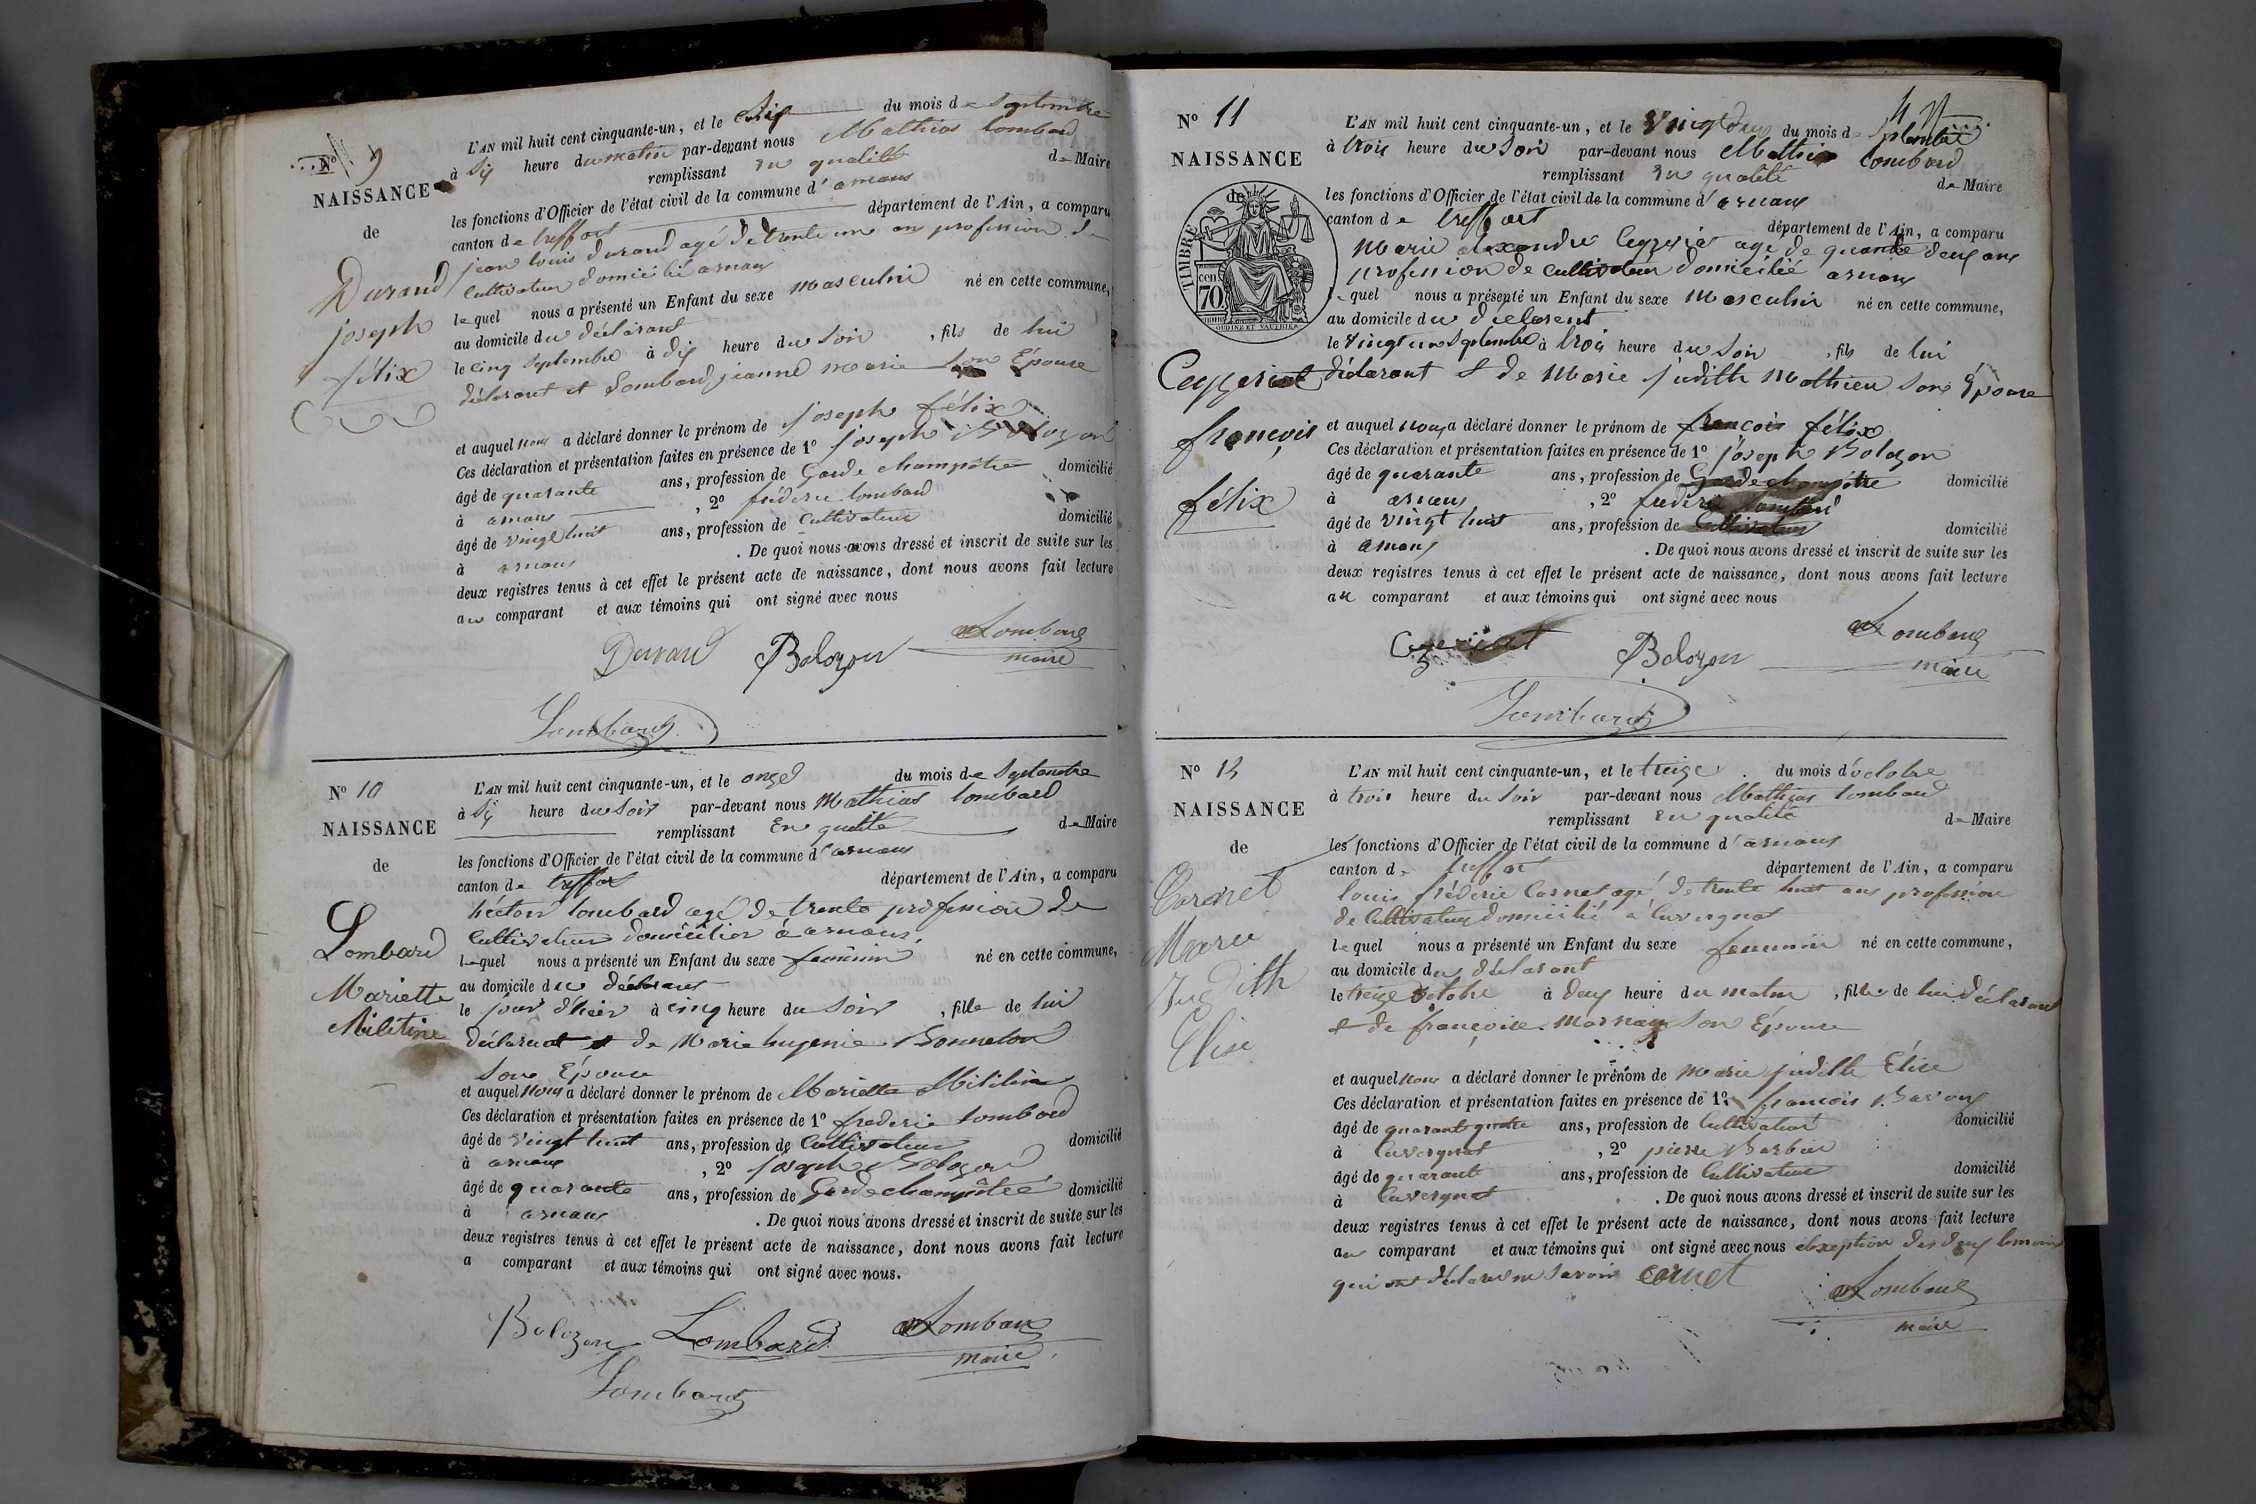 N° 9
NAISSANCE
de
Durand
joseph
félix
L'AN mil huit cent cinquante-un, et le du mois de Septembre
à Six heure du matin par-devant nous Mathias Lombard
remplissant En qualité de Maire
les fonctions d'Officier de l'état civil de la commune d'arnans
canton de treffort département de l'Ain, a comparu
jean louis durand agé de trente un ans profession de
Cultivateur domicilié arnans
lequel nous a présenté un Enfant du sexe masculin né en cette commune,
au domicile du déclarant
le cinq Septembre à dix heure du Soir, fils de lui
déclarant et Lombard jeanne marie Son Épouse
et auquel nous a déclaré donner le prénom de joseph félix
Ces déclaration et présentation faites en présence de 1° joseph Bolozon
âgé de quarante ans, profession de Garde champêtre domicilié
à arnans, 2° fréderic lombard
âgé de vingt huit ans, profession de Cultivateur domicilié
à arnans. De quoi nous avons dressé et inscrit de suite sur les
deux registres tenus à cet effet le présent acte de naissance, dont nous avons fait lecture
au comparant et aux témoins qui ont signé avec nous
Durand Bolozon Lombard
maire
Lombard
N° 10
NAISSANCE
de
Lombard
Mariette
Militine
L'AN mil huit cent cinquante-un, et le onze du mois de Septembre
à Six heure du Soir par-devant nous Mathias Lombard
remplissant En qualité de Maire
les fonctions d'Officier de l'état civil de la commune d'arnans
canton de treffort département de l'Ain, a comparu
hector lombard agé de trente profession de
Cultivateur domicilier à arnans.
lequel nous a présenté un Enfant du sexe feminin né en cette commune,
au domicile du déclarant
le jour d'hier à cinq heure du Soir, fille de lui
déclarant et de Marie hugenie Bonneton
Son Épouse
et auquel nous a déclaré donner le prénom de Mariette Militine
Ces déclaration et présentation faites en présence de 1° frederic lombard
âgé de vingt huit ans, profession de Cultivateur domicilié
à arnans, 2° joseph Bolozon
âgé de quarante ans, profession de Garde champêtre domicilié
à arnans. De quoi nous avons dressé et inscrit de suite sur les
deux registres tenus à cet effet le présent acte de naissance, dont nous avons fait lecture
a comparant et aux témoins qui ont signé avec nous.
Bolozon Lombard Lombard
maire
Lombard
N° 11
NAISSANCE
de
TIMBRE
cen
70
OUDINE ET VAUTHIER
Ceyzeriat
françois
félix
L'AN mil huit cent cinquante-un, et le vingt deux du mois de Septembre
à trois heure du Soir par-devant nous Mathias Lombard
remplissant En qualité de Maire
les fonctions d'Officier de l'état civil de la commune d'arnans
canton de treffort département de l'Ain, a comparu
Marie alexandre Ceyzeriat age de quarante deux ans
profession de Cultivateur domicilié arnans
lequel nous a présenté un Enfant du sexe Masculin né en cette commune,
au domicile du déclarent
le vingt un Septembre à trois heure du Soir, fils de lui
déclarant & de Marie judith Mathieu Son Épouse
et auquel nous a déclaré donner le prénom de françois félix
Ces déclaration et présentation faites en présence de 1° joseph Bolozon
âgé de quarante ans, profession de Garde champêtre domicilié
à arnans, 2° frederic lombard
âgé de vingt huit ans, profession de Cultivateur domicilié
à arnans. De quoi nous avons dressé et inscrit de suite sur les
deux registres tenus à cet effet le présent acte de naissance, dont nous avons fait lecture
au comparant et aux témoins qui ont signé avec nous
Bolozon Lombard
maire
Lombard
N° 12
NAISSANCE
de
Cornet
Marie
Judith
Elise
L'AN mil huit cent cinquante-un, et le treize du mois d'octobre
à trois heure du Soir par-devant nous Mathias Lombard
remplissant En qualité de Maire
les fonctions d'Officier de l'état civil de la commune d'arnans
canton de treffort département de l'Ain, a comparu
louis fréderic Cornet agé de trente huit ans profession
de Cultivateur domicilié à
lequel nous a présenté un Enfant du sexe feminin né en cette commune,
au domicile du déclarant
le treize octobre à deux heure du matin, fille de lui déclarant
& de françoise Marnay Son Épouse
et auquel nous a déclaré donner le prénom de marie judith Elise
Ces déclaration et présentation faites en présence de 1° françois
âgé de quarante quatre ans, profession de Cultivateur domicilié
à, 2° pierre Barbier
âgé de quarante ans, profession de Cultivateur domicilié
à. De quoi nous avons dressé et inscrit de suite sur les
deux registres tenus à cet effet le présent acte de naissance, dont nous avons fait lecture
au comparant et aux témoins qui ont signé avec nous exception des deux temoins
qui ont déclaré ne Savoir Cornet
Lombard
maire